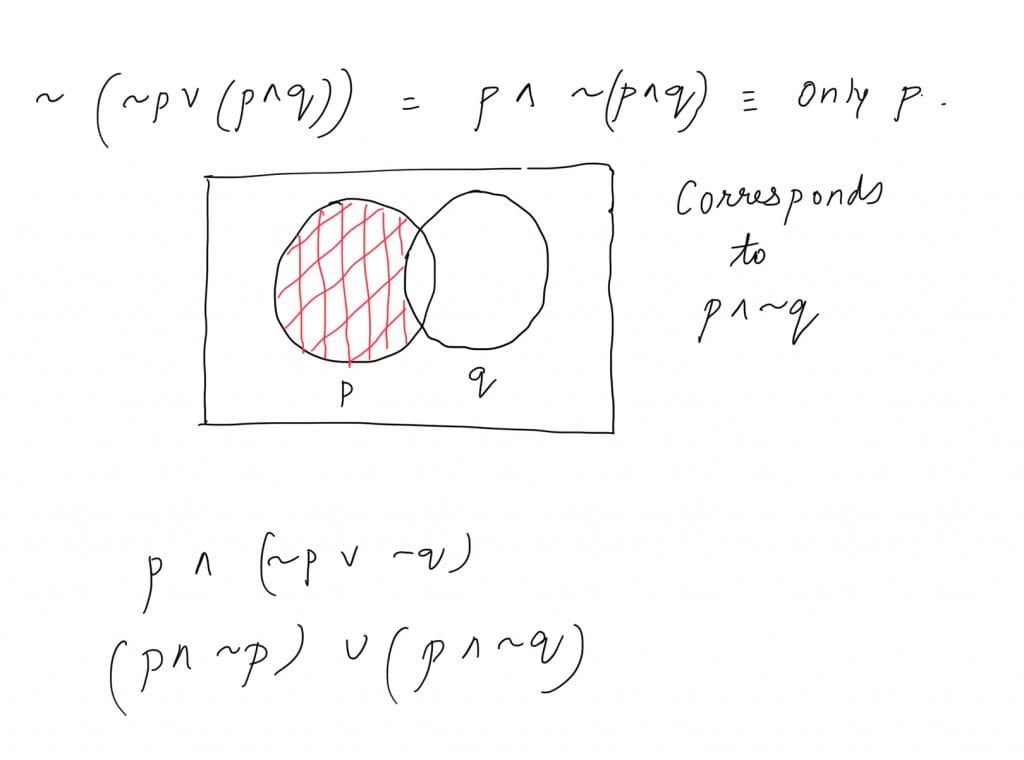 ~ (~p ∨ (p∧q)) = p ∧ ~(p∧q) ≡ only p.
Corresponds
to
p ∧ ~q
p
q
p ∧ (~p ∨ ~q)
(p∧ ~p) ∨ (p ∧ ~q)